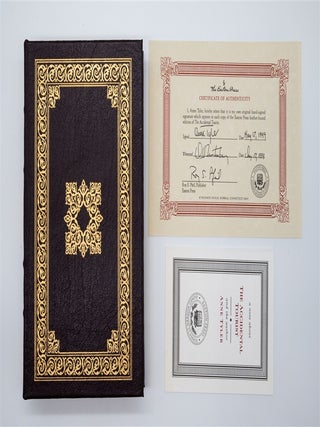 The Easton Press
CERTIFICATE OF AUTHENTICITY
I, Anne Tyler, hereby attest that it is my own original hand-signed
signature which appears in each copy of the Easton Press leather-bound
edition of The Accidental Tourist.
Signed
Date May
Witnessed
Date
Publisher
Easton Press
a note about
THE ACCIDENTAL
TOURIST
and the author
ANNE TYLER